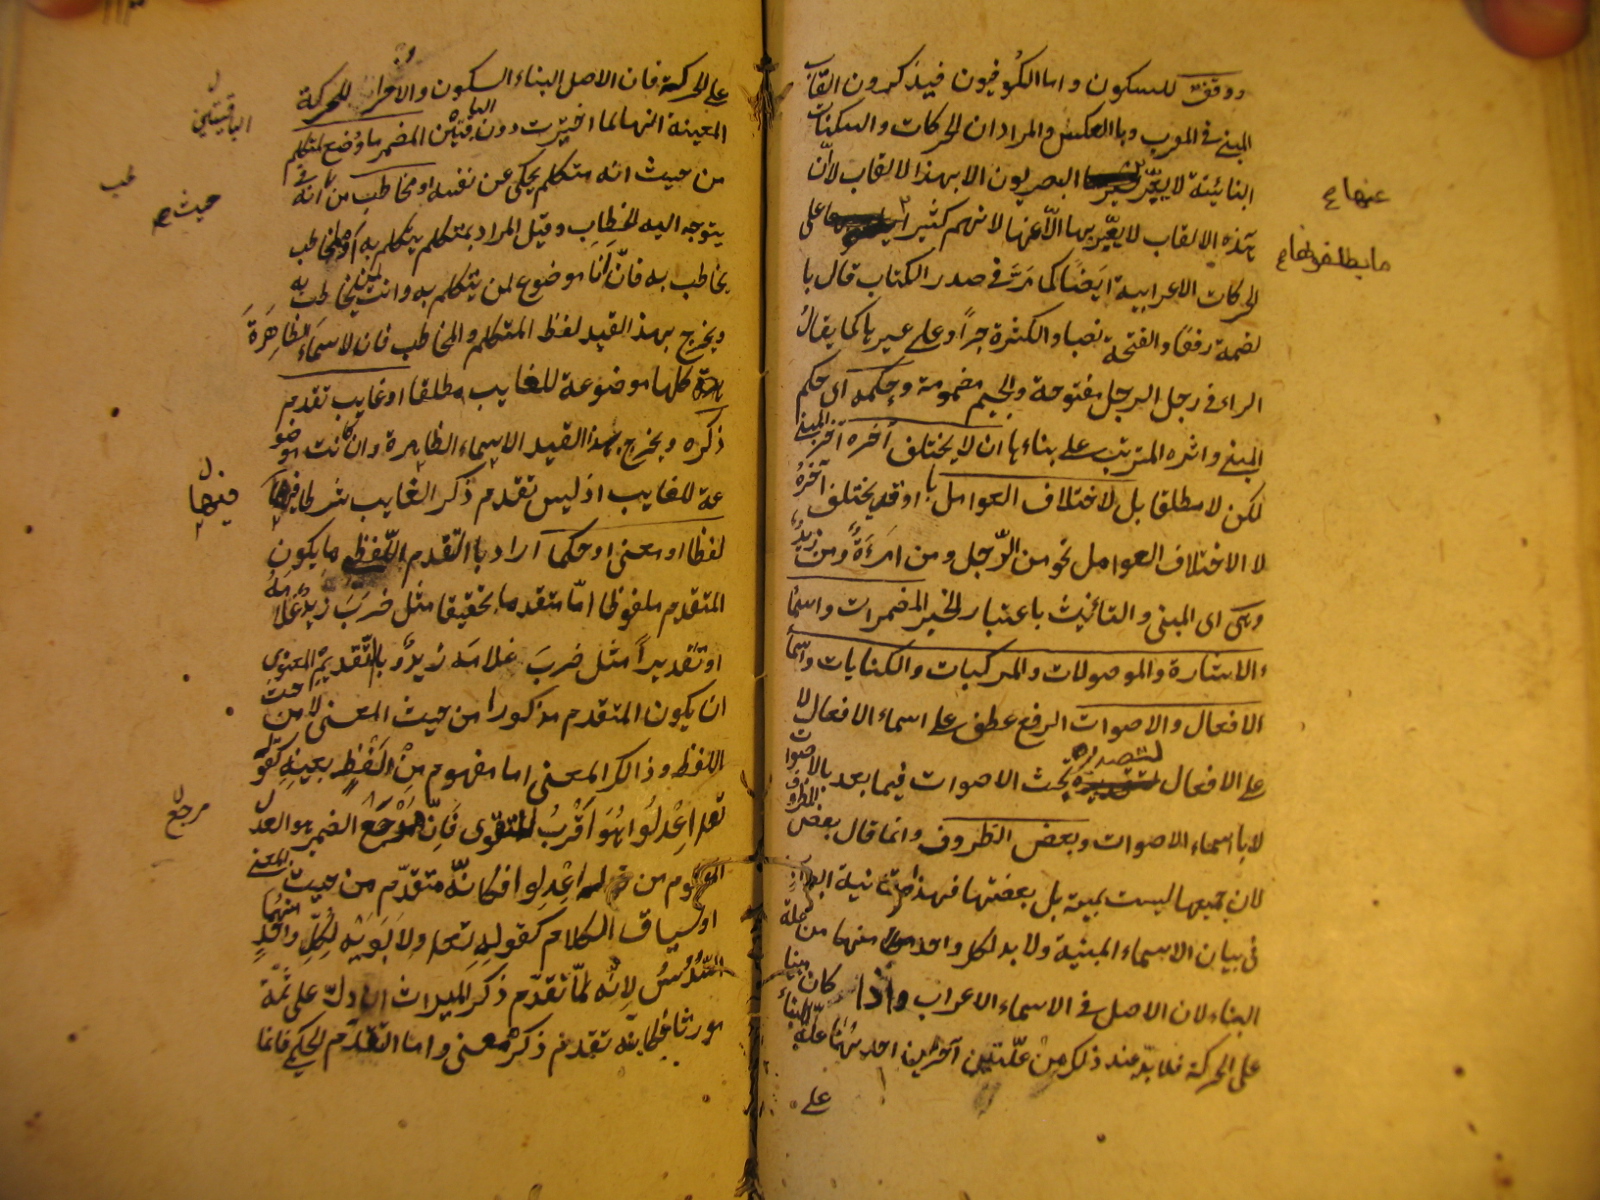 ووقف للسكون واما الكوفيون فيذكرون القاب
المبني في المعرب وبالعكس والمراد ان الحركات والسكنات
البنائية لا يعبر البصريون الا بهذا الالقاب لان
بهذه الالقاب لا يعبر بها الا عنها لانهم كثيرا على
الحركات الاعرابية ايضا كما مر في صدر الكتاب قال با
لضمة رفعا والفتحة نصبا والكسرة جرا وعلى غيرها كما يقال
الراء في رجل الرجل مفتوحة والجيم مضمومة وحكمه اى حكم
المبني واثره المترتب على بناءها ان لا يختلف آخره آخر المبنى
لكن لا مطلقا بل لاختلاف العوامل اذ قد يختلف آخره
لا لاختلاف العوامل نحو من الرجل ومن امرءة ومن زيد
وهى اى المبنى والتانيث باعتبار الخبر المضمرات واسما
ء الاشارة والموصولات والمركبات والكنايات واسما
ء الافعال والاصوات الرفع عطف على اسماء الافعال لا
على الافعال لتصديره بحث الاصوات فيما بعد بالاصوات
لا باسماء الاصوات وبعض الظروف وانما قال بعض الظروف
لان جميعها ليست مبنية بل بعضها فهذه ثمانية ابواب
فى بيان الاسماء المبنية ولا بد لكل واحد منها من علة
البناء لان الاصل في الاسماء الاعراب واذا كان مبنيا
على الحركة فلا بد عند ذلك من علتين آخرين احديهما علة البناء
على
عنها ع
ما يطلقونها ع
على الحركة فان الاصل البناء السكون والاخرى للحركة
المعينة انها لما اختيرت دون الباقيتين المضمر ما وضع لمتكلم
من حيث انه متكلم يحكى عن نفسه او مخاطب من انه
يتوجه اليه الخطاب وقيل المراد بمتكلم يتكلم به او مخاطب
يخاطب به فان انا موضوع لمن يتكلم به وانت لمن يخاطب به
ويخرج بهذ القيد لفظ المتكلم والمخاطب فان لاسماء الظاهرة
كلها موضوعة للغايب مطلقا او غايب تقدم
ذكره ويخرج بهذا القيد الاسماء الظاهرة وان كانت موضو
عة للغايب اذ ليس تقدم ذكر الغايب شرطا فيها
لفظا او معنى او حكما اراد بالتقدم اللفظى ما يكون
المتقدم ملفوظا اما متقدما تحقيقا مثل ضرب زيد غلامه
او تقديرا مثل ضرب غلامه زيد وبالتقديم المعنوى
ان يكون المتقدم مذكورا من حيث المعنى لا من حيث
اللفظ وذالك المعنى اما مفهوم من اللفظ بعينه كقوله
تعل اعدلوا هو اقرب للتقوى فان مرجع الضمير هو العدل
المفهوم من قوله اعدلوا فكانه متقدم من حيث المعنى
او سياق الكلام كقوله تعل ولابويه لكل واحد منهما
السدس لانه لما تقدم ذكر الميراث دل على ثمة
مورثا فكانه تقدم ذكره معنى واما التقدم الحكمى فانما
الباقيتين
حيث صح
فيها
مرجع